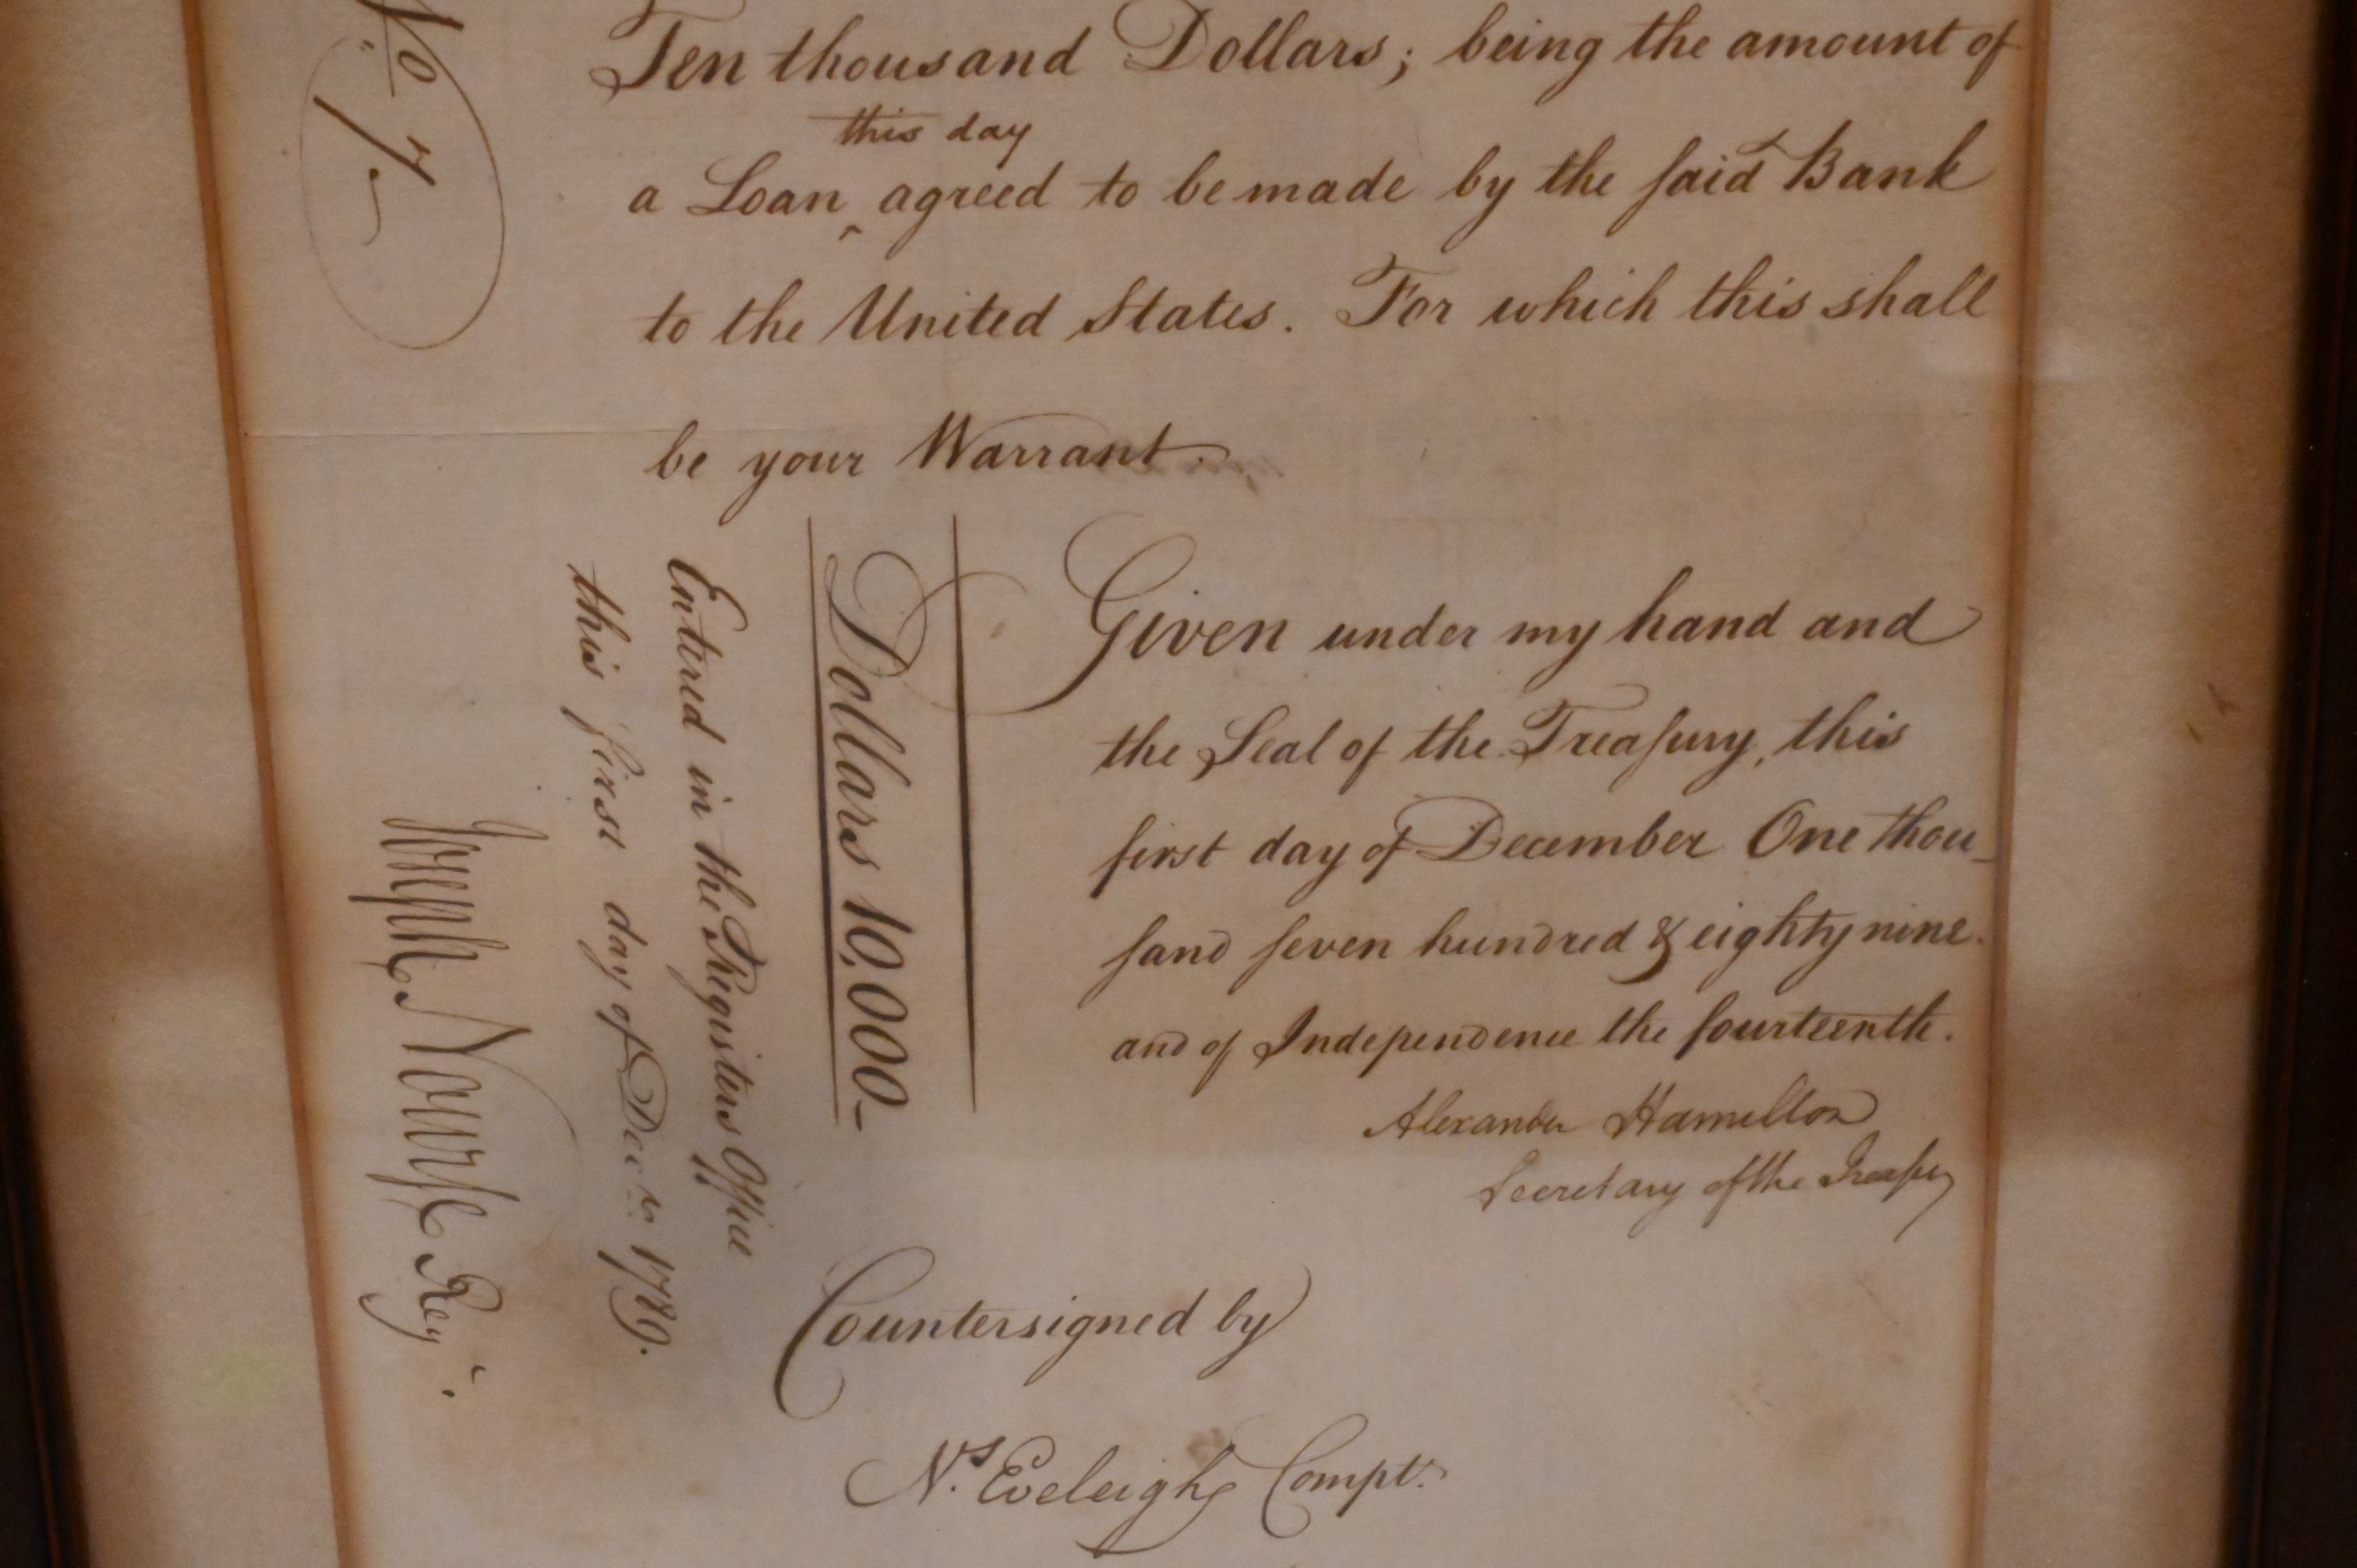 No 7
Ten thousand Dollars; being the amount of
this day
a Loan ^ agreed to be made by the said Bank
to the United States. For which this shall
be your Warrant.
Given under my hand and
the Seal of the Treasury, this
first day of December One thou-
sand seven hundred & eighty nine.
and of Independence the fourteenth.
Alexander Hamilton
Secretary of the Treasury
Dollars 10,000-
Entered in the Registers Office
this first day of Decr 1789.
Joseph Nourse Regr.
Countersigned by
Ns. Eveleigh Compt.